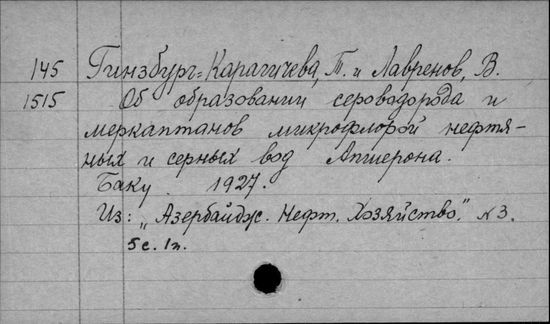 145 Гинзбург-Карагичева, Т. и Лавренов, В.
1515 Об образовании сероводорода и
меркаптанов микрофлорой нефтя-
ных и серных вод Апшерона.
Баку. 1927.
Из: „Азербайдж. Нефт. Хозяйство." №3.
5с. 1л.